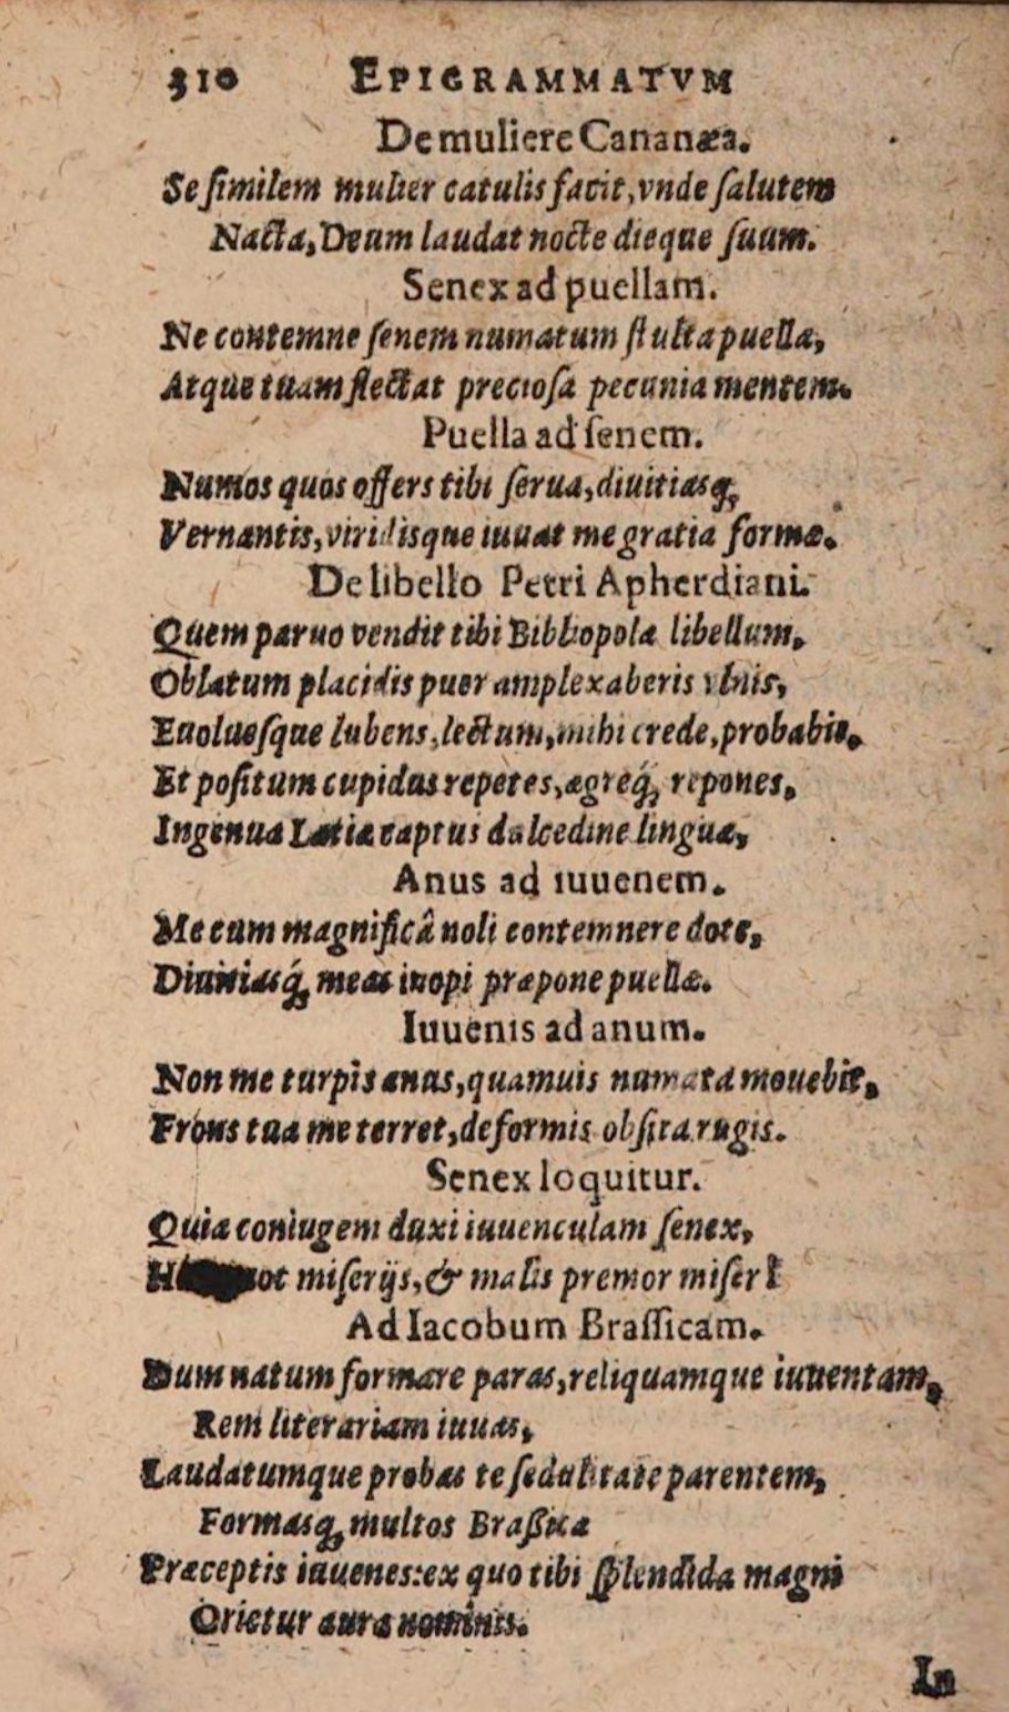 310 EPIGRAMMATVM
De muliere Cananæa.
Se ſimilem mulier catulis facit, vnde ſalutem
Nacta, Deum laudat nocte dieque ſuum.
Senex ad puellam.
Ne contemne ſenem numatum ſtulta puella,
Atque tuam flectat precioſa pecunia mentem.
Puella ad ſenem.
Numos quos offers tibi ſerua, diuitiasq́;
Vernantis, viridisque iuuat me gratia formæ.
De libello Petri Apherdiani.
Quem paruo vendit tibi Bibliopola libellum,
Oblatum placidis puer amplexaberis vlnis,
Euoluesſque lubens, lectum, mihi crede, probabis.
Et poſitum cupidus repetes, ægreq́; repones,
Ingenua Latiæ captus dulcedine linguæ,
Anus ad iuuenem.
Me cum magnificâ noli contemnere dote,
Diuitiasq́; meas inopi præpone puellæ.
Iuuenis ad anum.
Non me turpis anus, quamuis numata mouebit,
Frons tua me terret, deformis obſita rugis.
Senex loquitur.
Quia coniugem duxi iuuenculam ſenex,
miſerijs, & malis premor miſer!
Ad Iacobum Braſſicam.
Dum natum formare paras, reliquamque iuuentam,
Rem literariam iuuas,
Laudatumque probas te ſedulitate parentem,
Formasq́; multos Braßica
Præceptis iuuenes: ex quo tibi ſplendida magni
Orietur aura nominis.
In